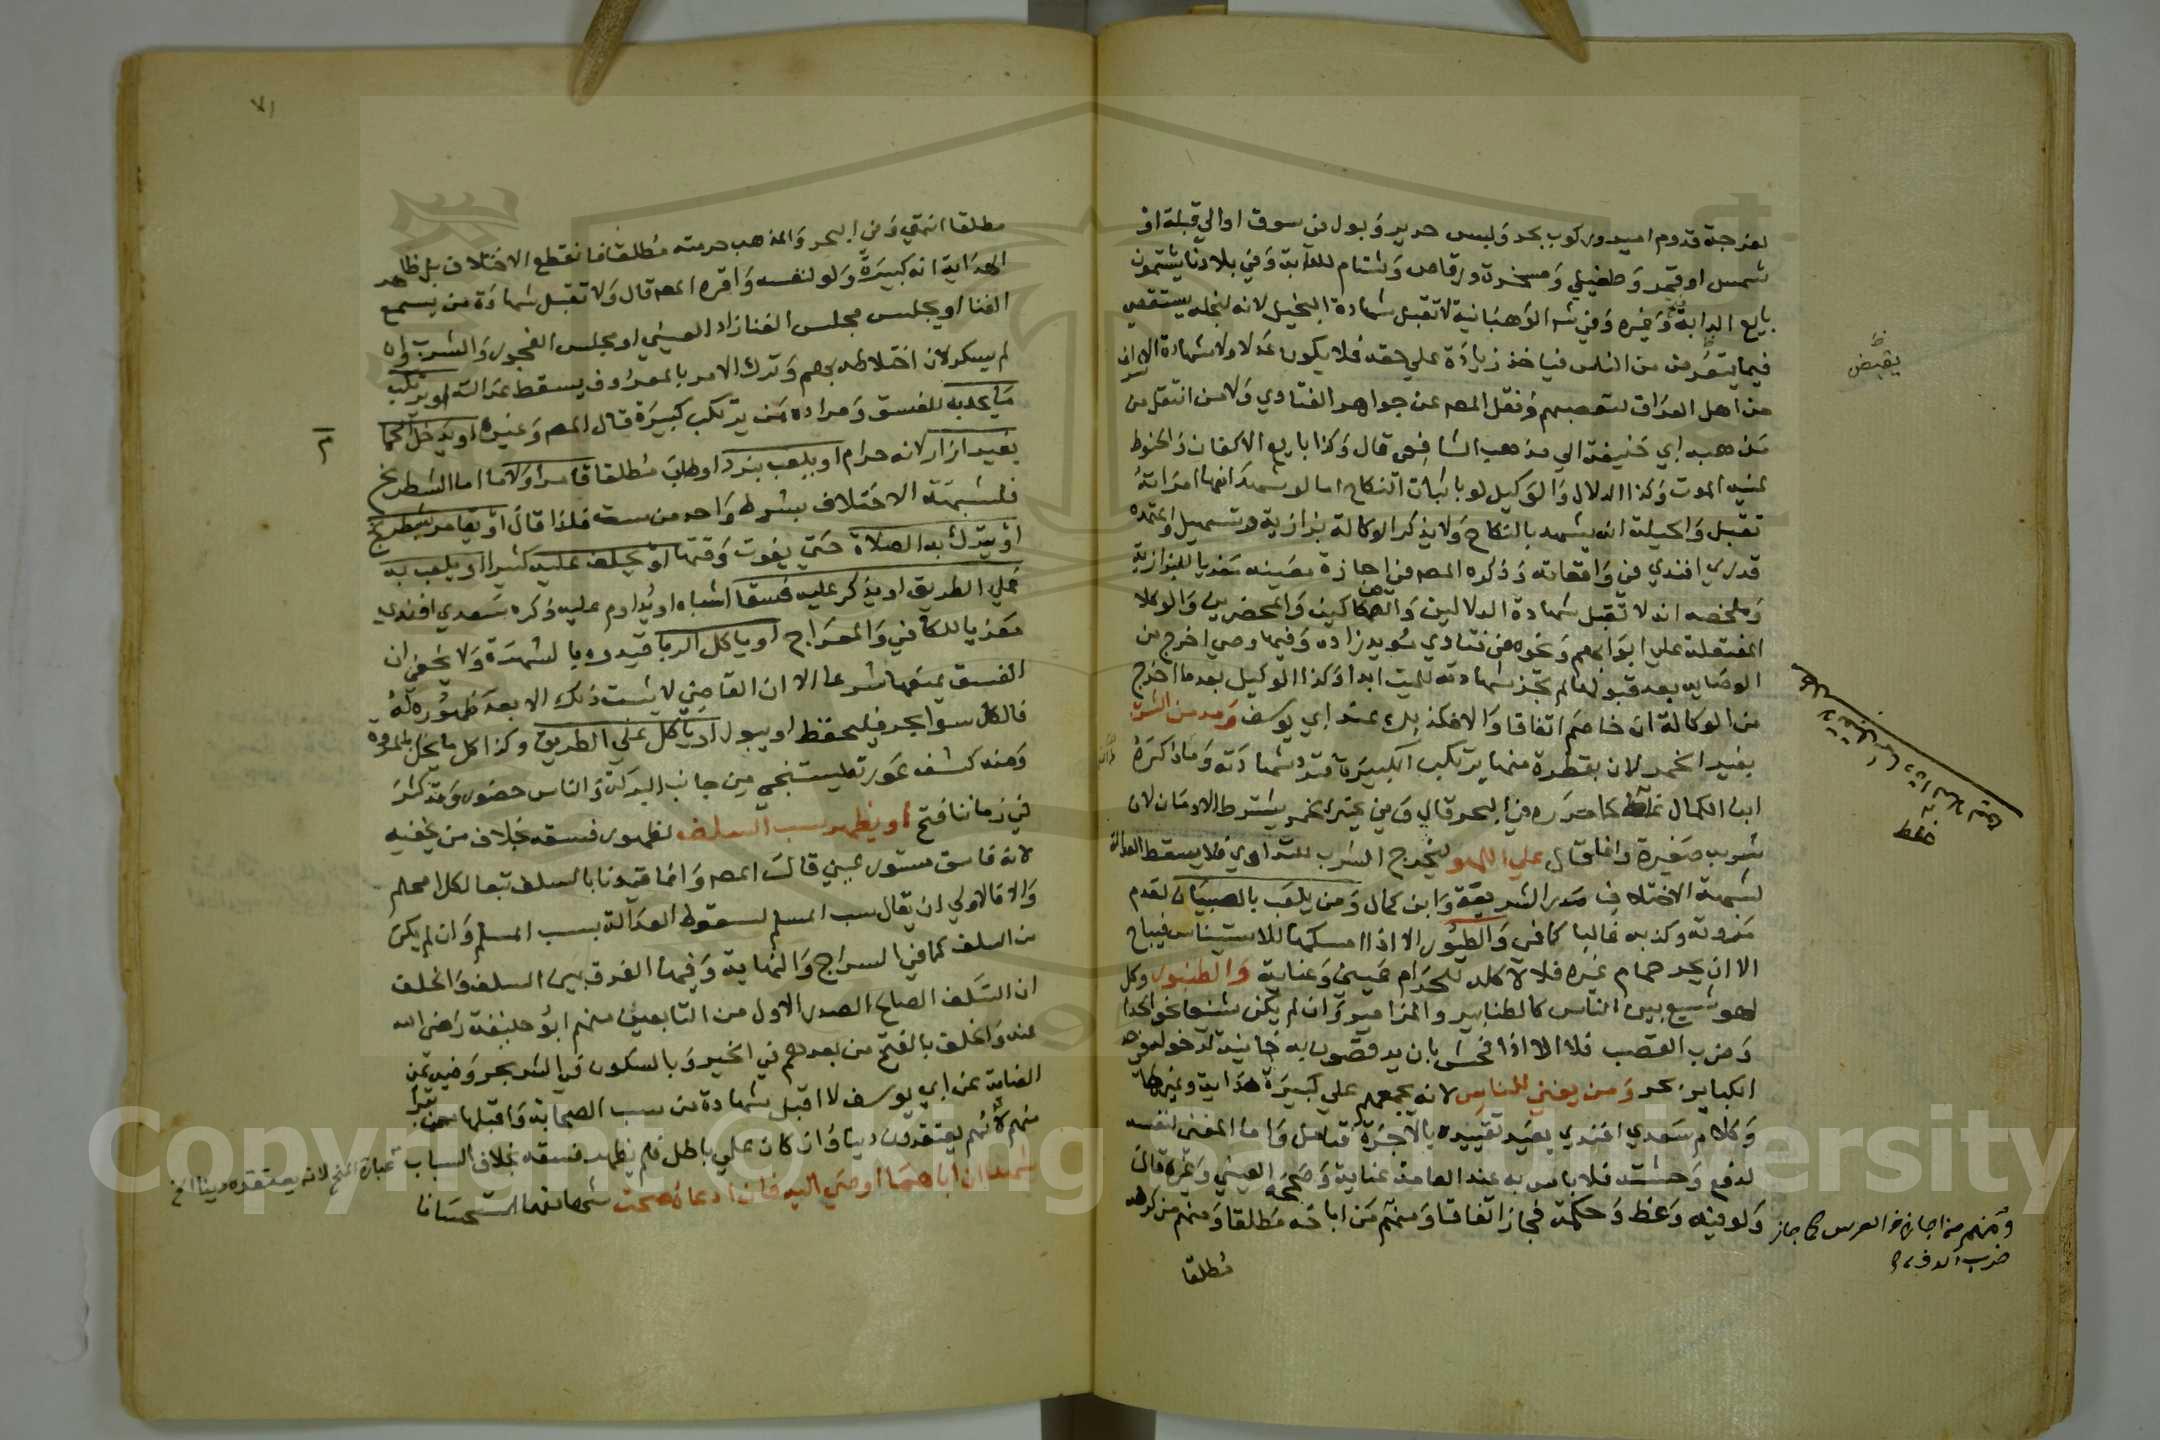 لفرجة قدوم امير وركوب بحر ولبس حرير وبول في سوق او الي قبلة او
شمس او قمر وطفيلي ومسخرة ورقاص وشتام للدابة وفي بلادنا يشتمون
بايع الدابة وغيره وفي شرح الوهبانية لا تقبل شهادة البخيل لانه لبخله يستقصي
فيما يتقرض من الناس فياخذ زيادة علي حقه فلا يكون عدلا ولا شهادة الاشراف
من اهل العراق لتعصبهم ونقل المصـ عن جواهر الفتاوي ولا من انتقل من
مذهب ابي حنيفة الي مذهب الشافعي قال وكذا بايع الاكفان والحنوط
لتمنيه الموت وكذا الدلال والوكيل لو باثبات النكاح اما لو شهد انها امراته
تقبل والحيلة انه يشهد بالنكاح ولا يذكر الوكالة بزازية وتسهيل واعتمده
قدري افندي في واقعاته وذكره المصـ في اجازة معينه معزيا للبزازية
وملخصه انه لا تقبل شهادة الدلالين والصكاكين والمحضرين والوكلا
المفتعلة علي ابوابهم ونحوه في فتاوي مويد زاده وفيها وصي اخرج من
الوصايه بعد قبولها لم تجز شهادته للميت ابدا وكذا الوكيل بعد ما اخرج
من الوكالة ان خاصم اتفاقا والا فكذلك عند ابي يوسف ومدمن الشرب
بغير الخمر لان بقطرة منها يرتكب الكبيرة فترد شهادته وما ذكره
ابن الكمال غلط كما حرره في البحر قال وفي غير الخمر يشترط الادمان لان
شربه صغيرة وانما قال علي اللهو ليخرج الشرب للتداوي فلا يسقط العدالة
لشبهة الاختلاف صدر الشريعة وابن كمال ومن يلعب بالصبيان لعدم
مروته وكذبه غالبا كافي والطيور الا اذا امسكها للاستيناس فيباح
الا ان يجر حمام غيره فلا لاكله للحرام عيني وعناية والطنبور وكل
لهو شنيع بين الناس كالطنابير والمزامير وان لم يكن شنيعا نحو الحدا
وضرب القصب فلا الا اذا فحش بان يرقصون به خانية لدخوله في حد
الكباير بحر ومن يغني للناس لانه يجمعهم علي كبيرة هداية وغيرها
وكلام سعدي افندي يفيد تقييده بالاجرة فتامل واما المغني لنفسه
لدفع وحشته فلا باس به عند العامة عناية وصححه العيني وغيره قال
ولو فيه وعظ وحكمة فجاز اتفاقا ومنهم من اباحه مطلقا ومنهم من كرهه
مطلقا
يقبض
غلط
ومنهم من اجازه في العرس كما جاز
ضرب الدف فيه
٧١
مطلقا انتهي وفي البحر والمذهب حرمته مطلقا فانقطع الاختلاف بل ظاهر
الهداية انه كبيرة ولو لنفسه واقره المصـ قال ولا تقبل شهادة من يسمع
الغنا او يجلس مجلس الغنا زاد العيني او مجلس الفجور والشرب وان
لم يسكر لان اختلاطه بهم وترك الامر بالمعروف يسقط عدالته او يرتكب
ما يحد به للفسق ومراده من يرتكب كبيرة قال المصـ وغيره او يدخل الحمام
بغير ازار لانه حرام او يلعب بنرد او طاب مطلقا قامر او لا اما الشطرنج
فلشبهة الاختلاف بشرط واحد من ست فلذا قال او يقامر بشطرنج
او يترك به الصلاة حتي يفوت وقتها او يحلف عليه كثيرا او يلعب به
علي الطريق او يذكر عليه فسقا اشباه او يداوم عليه ذكره سعدي افندي
معزيا للكافي والمعراج او ياكل الربا قيدوه بالشهرة ولا يخفي ان
الفسق يمنعها شرعا الا ان القاضي لا يثبت ذلك الا بعد ظهوره له
فالكل سوا بحر فليحفظ او يبول او ياكل علي الطريق وكذا كل ما يخل بالمروة
ومنه كشف عورته ليستنجي من جانب البركة والناس حضور وقد كثر
في زماننا فتح او يظهر سب السلف لظهور فسقه بخلاف من يخفيه
لانه فاسق مستور عيني قال المصـ وانما قيدنا بالسلف تبعا لكلامهم
والا فالاولي ان يقال سب المسلم لسقوط العدالة بسب المسلم وان لم يكن
من السلف كما في السراج والنهاية وفيها الفرق بين السلف والخلف
ان السلف الصالح الصدر الاول من التابعين منهم ابو حنيفة رضي الله
عنه والخلف بالفتح من بعدهم في الخير وبالسكون في الشر بحر وفيه عن
العناية عن ابي يوسف لا اقبل شهادة من سب الصحابة واقبلها ممن تبرا
منهم لانهم يعتقدون دينا وان كان علي باطل فلم يظهر فسقه بخلاف الساب
شهدا ان اباهما اوصي اليه فان ادعاه صحت شهادتهما استحسانا
م
عبارة المنح لانه يعتقده دينا الخ